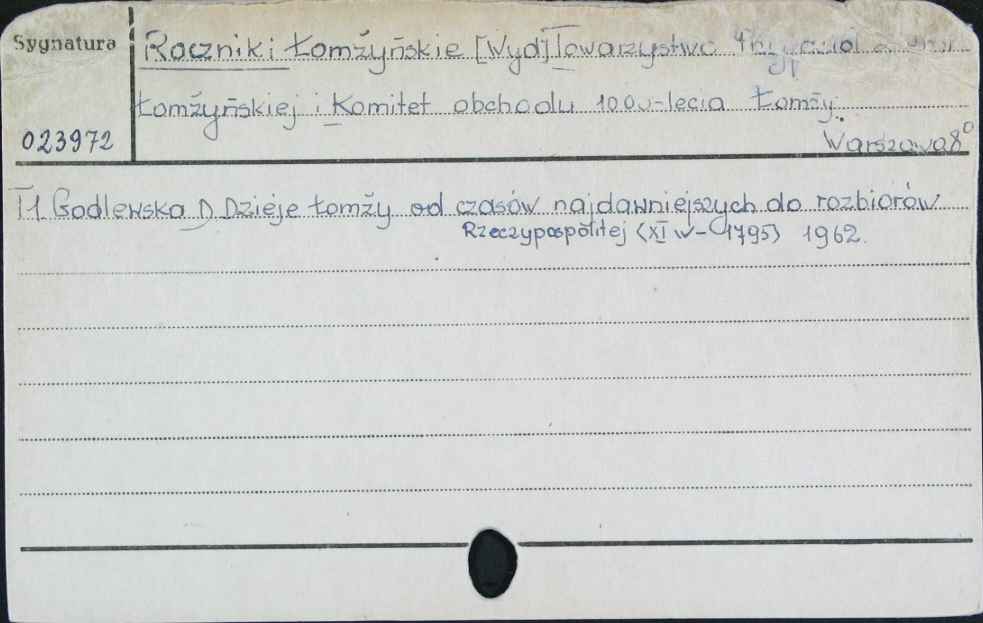 Sygnatura
Roczniki Łomżyńskie [Wyd] Towarzystwo
Łomżyńskiej i Komitet obchodu 1000-lecia Łomży.
023972
Warszawa 8°
T1 Godlewska D Dzieje Łomży od czasów najdawniejszych do rozbiorów
Rzeczypospolitej (XI w-1795) 1962.